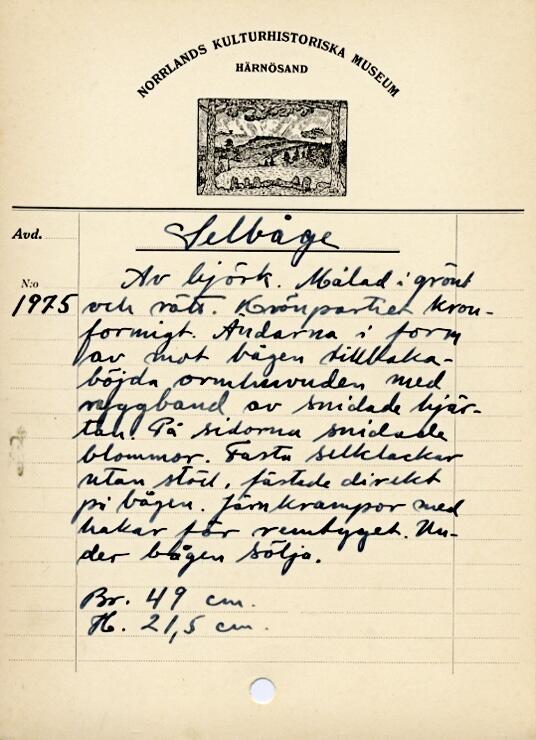 NORRLANDS KULTURHISTORISKA MUSEUM
HÄRNÖSAND
Avd.
Selbåge
N:o
1975
Av björk. Målad i grönt
och rött. Krönpartiet kron-
formigt. Ändarna i form
av mot bågen tillbaka-
böjda ormhuvuden med
ryggband av snidade hjär-
tan. På sidorna snidade
blommor. Fasta selklackar
utan stöd, fästade direkt
på bågen. Järnkrampor med
hakar för remtyget. Un-
der bågen sölja.
Br. 49 cm.
H. 21,5 cm.